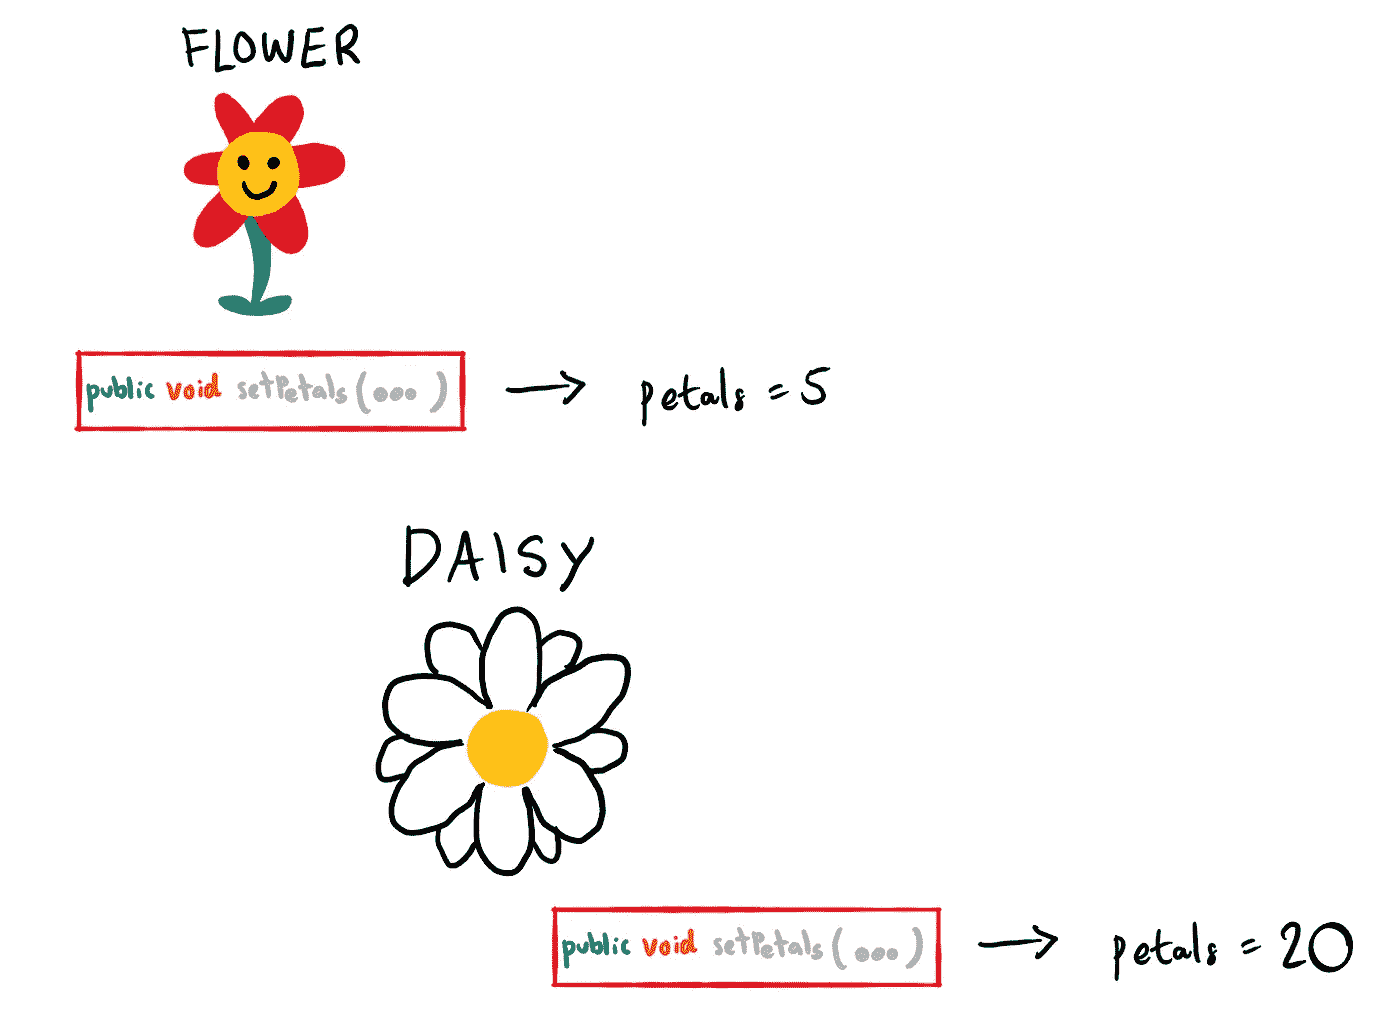 FLOWER
public void setPetals(...) → petals = 5
DAISY
public void setPetals(...) → petals = 20